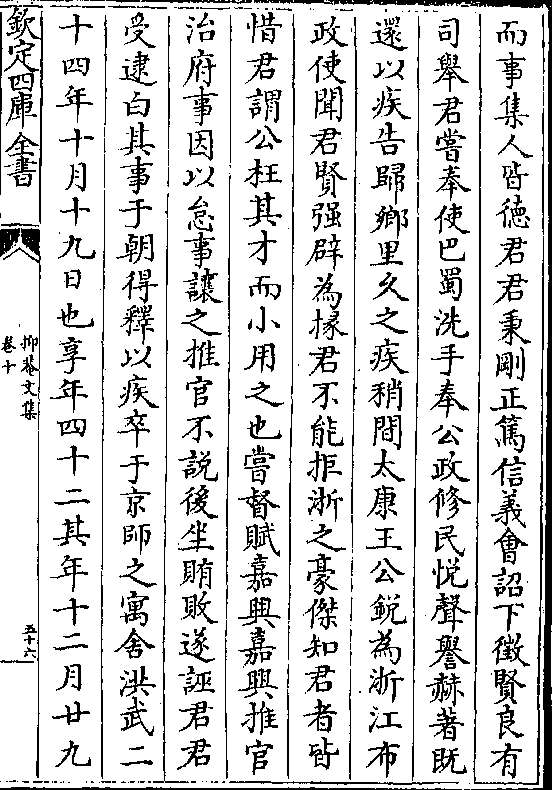 而事集人皆徳君君秉剛正篤信義會詔下徵賢良有
司舉君嘗奉使巴蜀洗手奉公政修民悦聲譽赫著既
還以疾告歸鄉里久之疾稍間太康王公鋭為浙江布
政使聞君賢强辟為掾君不能拒浙之豪傑知君者皆
惜君謂公枉其才而小用之也嘗督賦嘉興嘉興推官
治府事因以怠事讓之推官不説後坐賄敗遂誣君君
受逮白其事于朝得釋以疾卒于京師之寓舍洪武二
十四年十月十九日也享年四十二其年十二月廿九
欽定四庫全書
抑菴文集
卷十
五十六